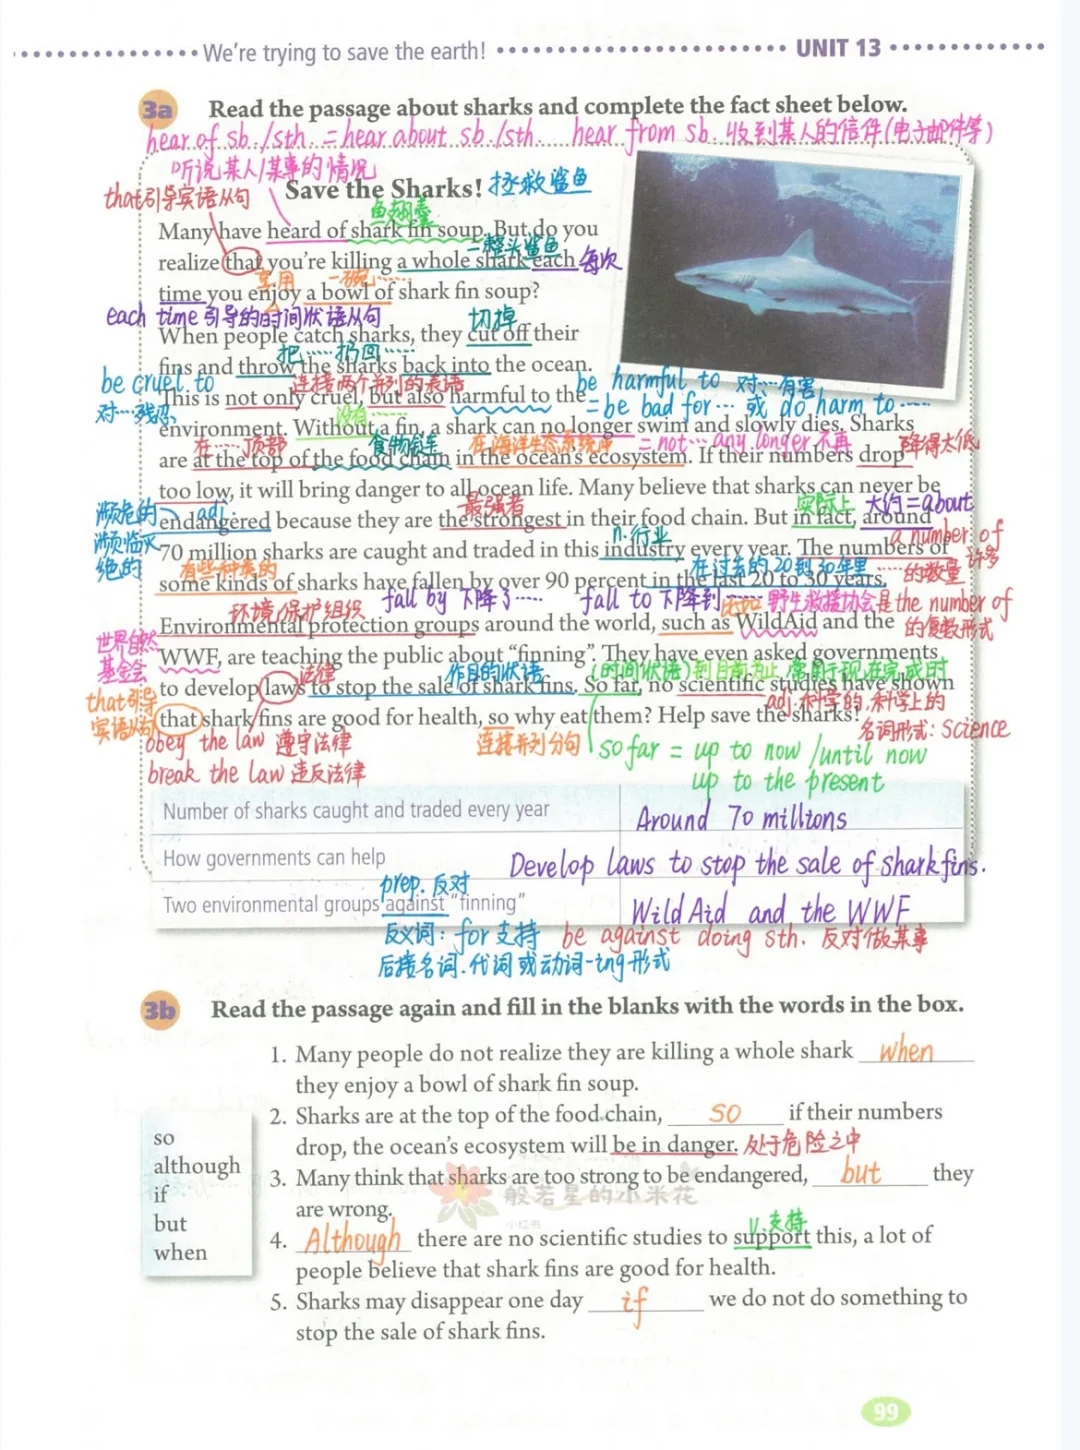 We're trying to save the earth! UNIT 13
3a Read the passage about sharks and complete the fact sheet below.
hear of sb./sth. = hear about sb./sth. hear from sb. 收到某人的信件(电子邮件等)
听说某人/某事的情况
Save the Sharks! 拯救鲨鱼
that引导宾语从句
鱼翅羹
Many have heard of shark fin soup. But do you
一整头鲨鱼
realize that you're killing a whole shark each 每次
享用 一碗……
time you enjoy a bowl of shark fin soup?
each time 引导的时间状语从句 切掉
When people catch sharks, they cut off their
把……扔回……
fins and throw the sharks back into the ocean.
be cruel to 连接两个并列的表语 be harmful to 对…有害
This is not only cruel, but also harmful to the
对…残忍 没有…… = be bad for… 或 do harm to……
environment. Without a fin, a shark can no longer swim and slowly dies. Sharks
在……顶部 食物链 在海洋生态系统中 = not… any longer 不再 降得太低
are at the top of the food chain in the ocean's ecosystem. If their numbers drop
too low, it will bring danger to all ocean life. Many believe that sharks can never be
濒危的 adj. 最强者 实际上 大约=about
endangered because they are the strongest in their food chain. But in fact, around
濒临灭绝的 n.行业 a number of 许多
70 million sharks are caught and traded in this industry every year. The numbers of
有些种类的 在过去的20到30年里 ……的数量
some kinds of sharks have fallen by over 90 percent in the last 20 to 30 years.
环境保护组织 fall by 下降了…… fall to 下降到…… 比如 野生救援协会 是the number of的复数形式
Environmental protection groups around the world, such as WildAid and the
世界自然基金会
WWF, are teaching the public about “finning”. They have even asked governments
法律 作目的状语 (时间状语)到目前为止 常用于现在完成时
to develop laws to stop the sale of shark fins. So far, no scientific studies have shown
that引导宾语从句 adj.科学的,科学上的
that shark fins are good for health, so why eat them? Help save the sharks!
名词形式: science
obey the law 遵守法律 连接并列分句 so far = up to now /until now
break the law 违反法律 up to the present
Number of sharks caught and traded every year Around 70 millions
How governments can help Develop laws to stop the sale of shark fins.
prep. 反对
Two environmental groups against “finning” WildAid and the WWF
反义词: for 支持 be against doing sth. 反对做某事
后接名词.代词或动词-ing形式
3b Read the passage again and fill in the blanks with the words in the box.
1. Many people do not realize they are killing a whole shark when
they enjoy a bowl of shark fin soup.
2. Sharks are at the top of the food chain, so if their numbers
drop, the ocean's ecosystem will be in danger. 处于危险之中
3. Many think that sharks are too strong to be endangered, but they
are wrong.
v.支持
4. Although there are no scientific studies to support this, a lot of
people believe that shark fins are good for health.
5. Sharks may disappear one day if we do not do something to
stop the sale of shark fins.
so
although
if
but
when
般若星的小米花
小红书
99